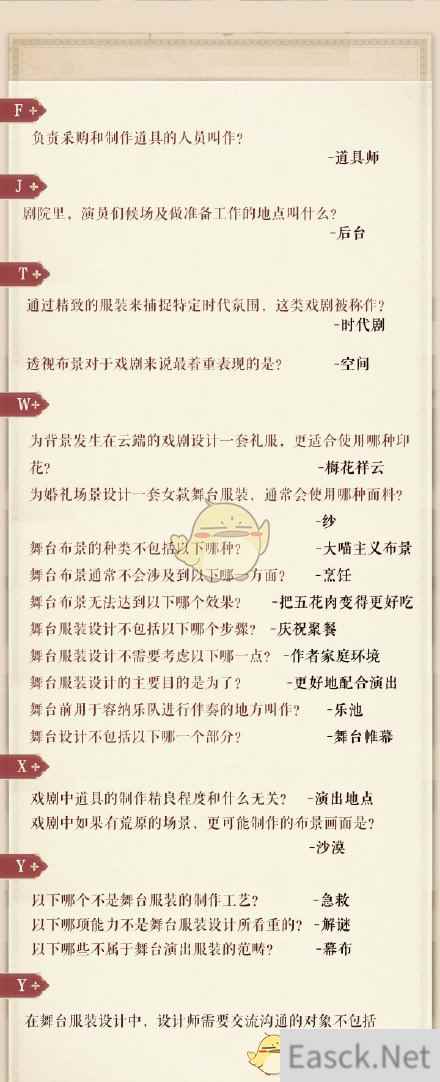 F+
负责采购和制作道具的人员叫作?
-道具师
J+
剧院里，演员们候场及做准备工作的地点叫什么?
-后台
T+
通过精致的服装来捕捉特定时代氛围，这类戏剧被称作?
-时代剧
透视布景对于戏剧来说最着重表现的是? -空间
W+
为背景发生在云端的戏剧设计一套礼服，更适合使用哪种印
花? -梅花祥云
为婚礼场景设计一套女款舞台服装，通常会使用哪种面料?
-纱
舞台布景的种类不包括以下哪种? -大喵主义布景
舞台布景通常不会涉及到以下哪一方面? -烹饪
舞台布景无法达到以下哪个效果? -把五花肉变得更好吃
舞台服装设计不包括以下哪个步骤? -庆祝聚餐
舞台服装设计不需要考虑以下哪一点? -作者家庭环境
舞台服装设计的主要目的是为了? -更好地配合演出
舞台前用于容纳乐队进行伴奏的地方叫作? -乐池
舞台设计不包括以下哪一个部分? -舞台帷幕
X+
戏剧中道具的制作精良程度和什么无关? -演出地点
戏剧中如果有荒原的场景，更可能制作的布景画面是?
-沙漠
Y+
以下哪个不是舞台服装的制作工艺? -急救
以下哪项能力不是舞台服装设计所看重的? -解谜
以下哪些不属于舞台演出服装的范畴? -幕布
Y+
在舞台服装设计中，设计师需要交流沟通的对象不包括
Easck.Net